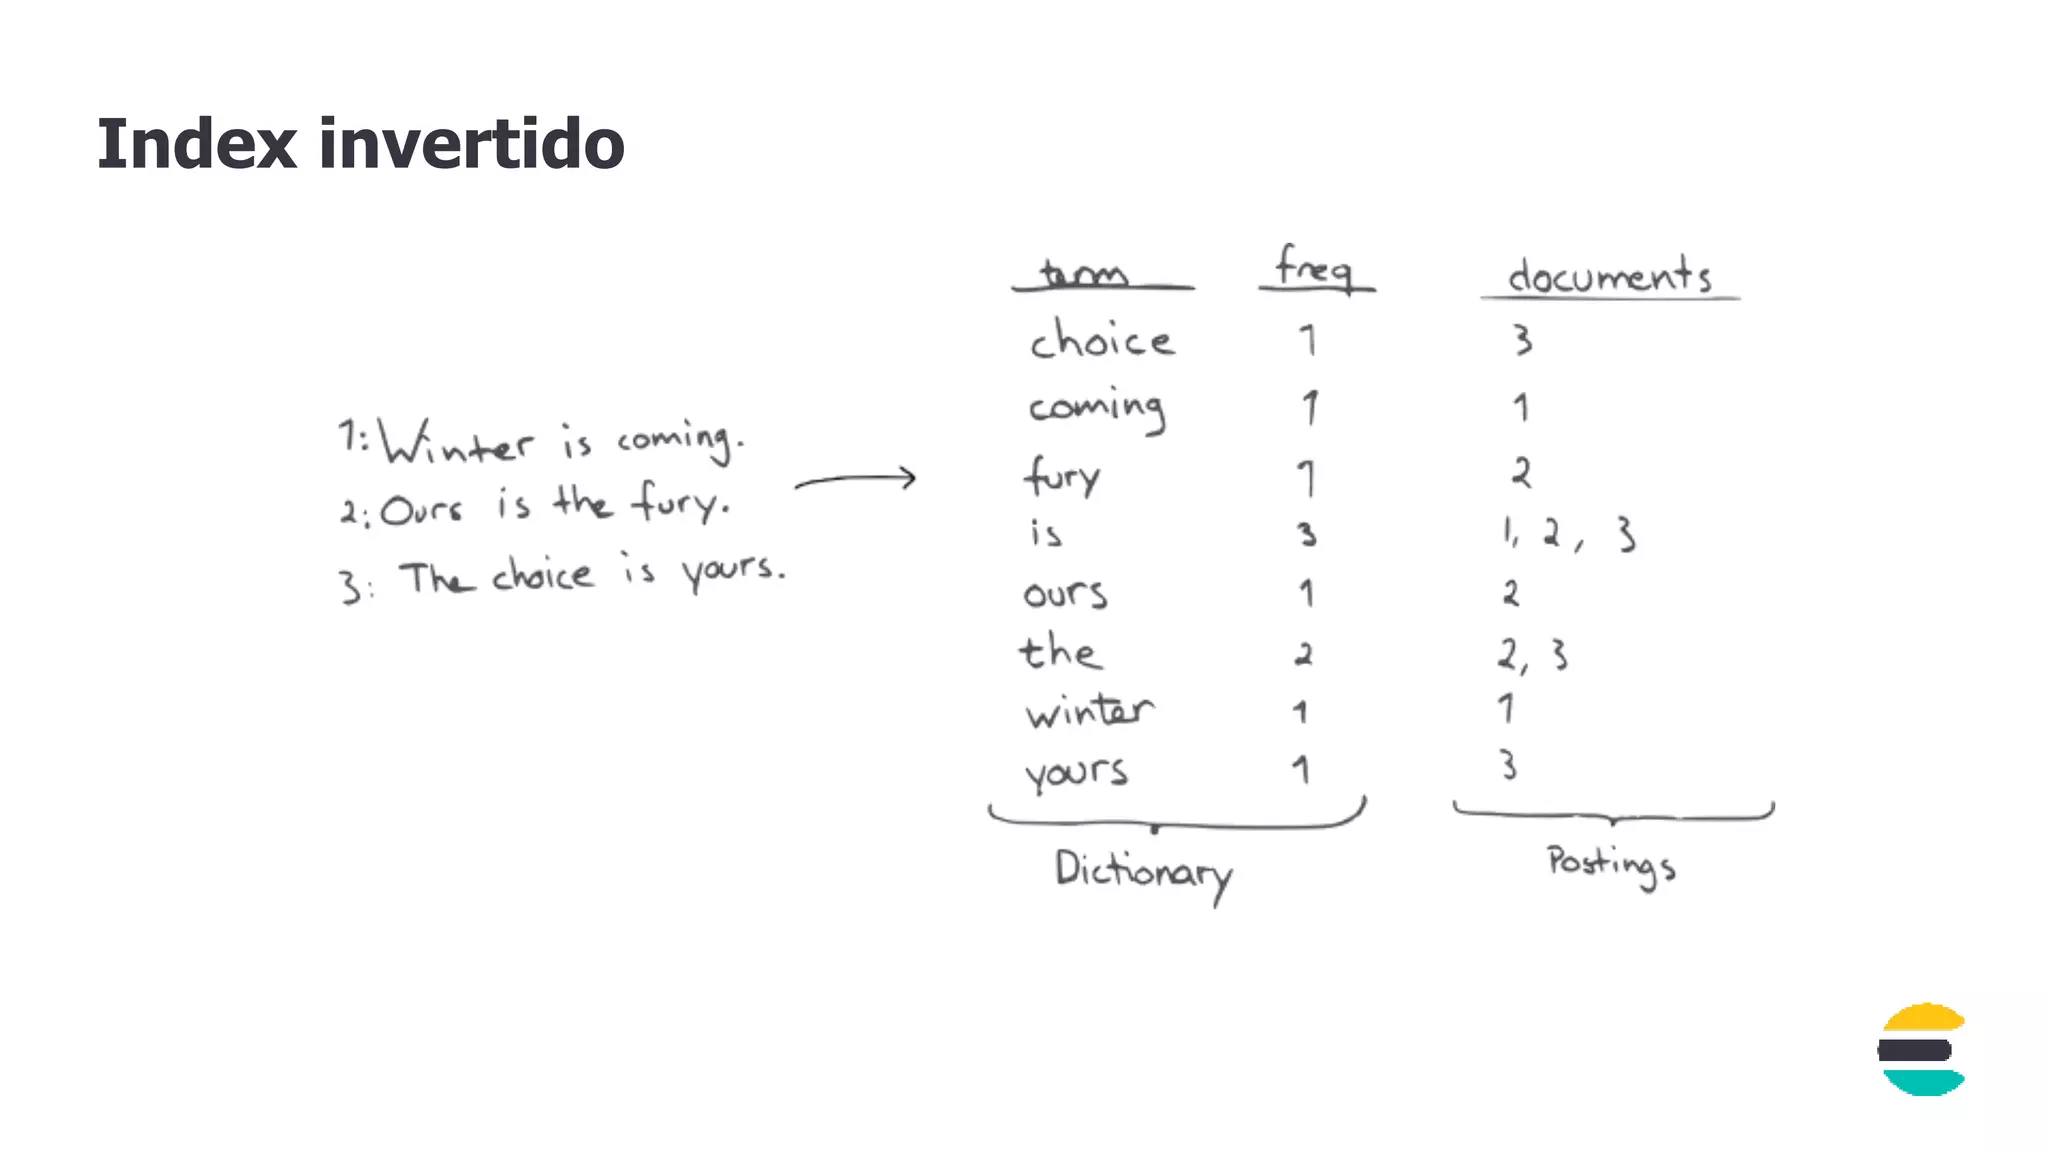 Index invertido
1: Winter is coming.
2: Ours is the fury.
3: The choice is yours.
term freq documents
choice 1 3
coming 1 1
fury 1 2
is 3 1, 2, 3
ours 1 2
the 2 2, 3
winter 1 1
yours 1 3
Dictionary Postings